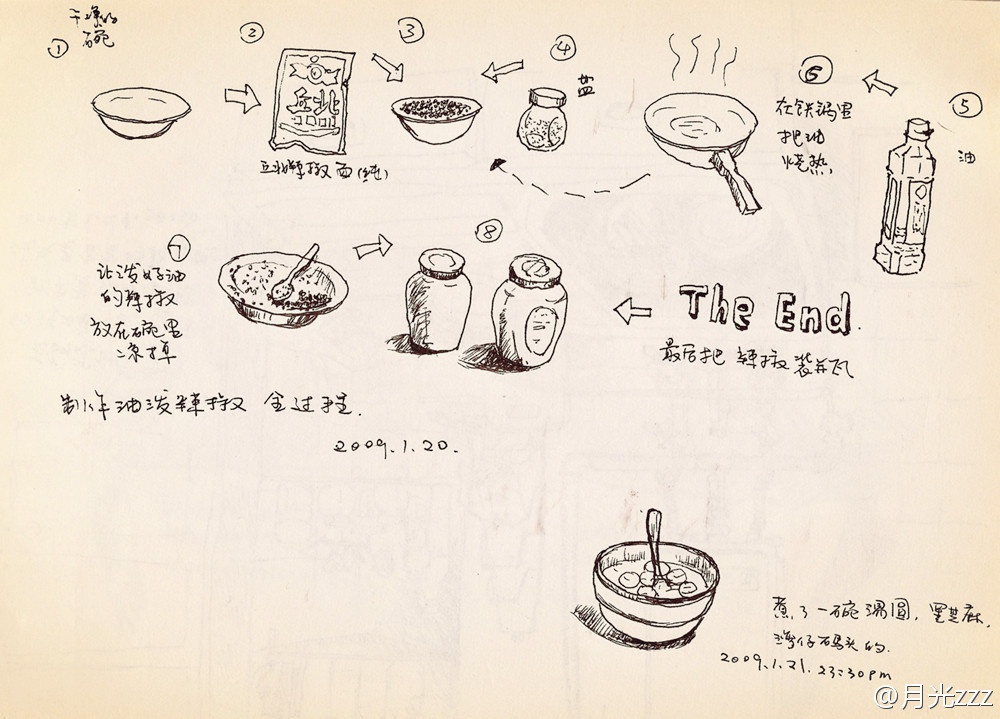 干燥的
碗
①
②
丘北
丘北辣椒面(纯)
③
④
盐
⑤
油
⑥
在铁锅里
把油
烧热
⑦
让泼好油
的辣椒
放在碗里
凉掉
⑧
The End.
最后把辣椒装进瓦
制作油泼辣椒 全过程.
2009.1.20.
煮了一碗汤圆,黑芝麻.
湾仔码头的.
2009.1.21. 23:30pm
@月光zzz